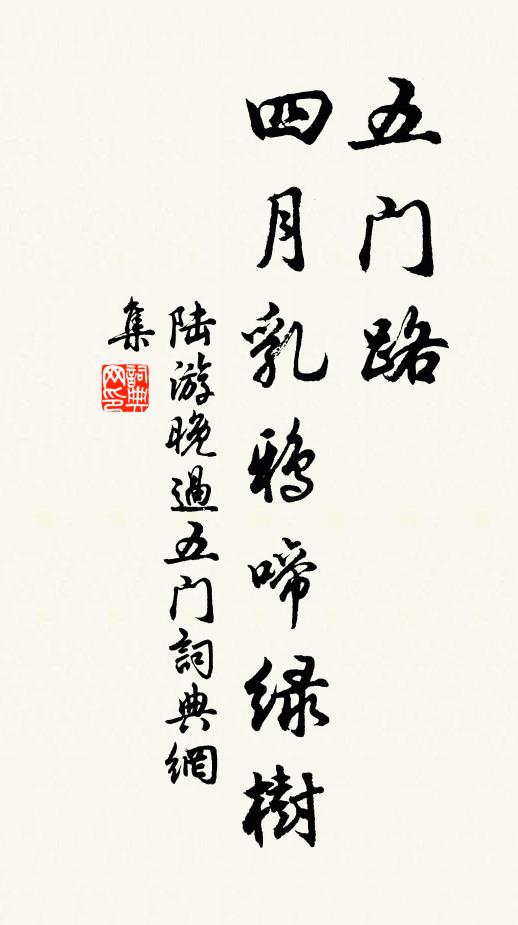 五门路
四月乳鸦啼绿樹
陆游晚過五门詞典網
集
詞典网印